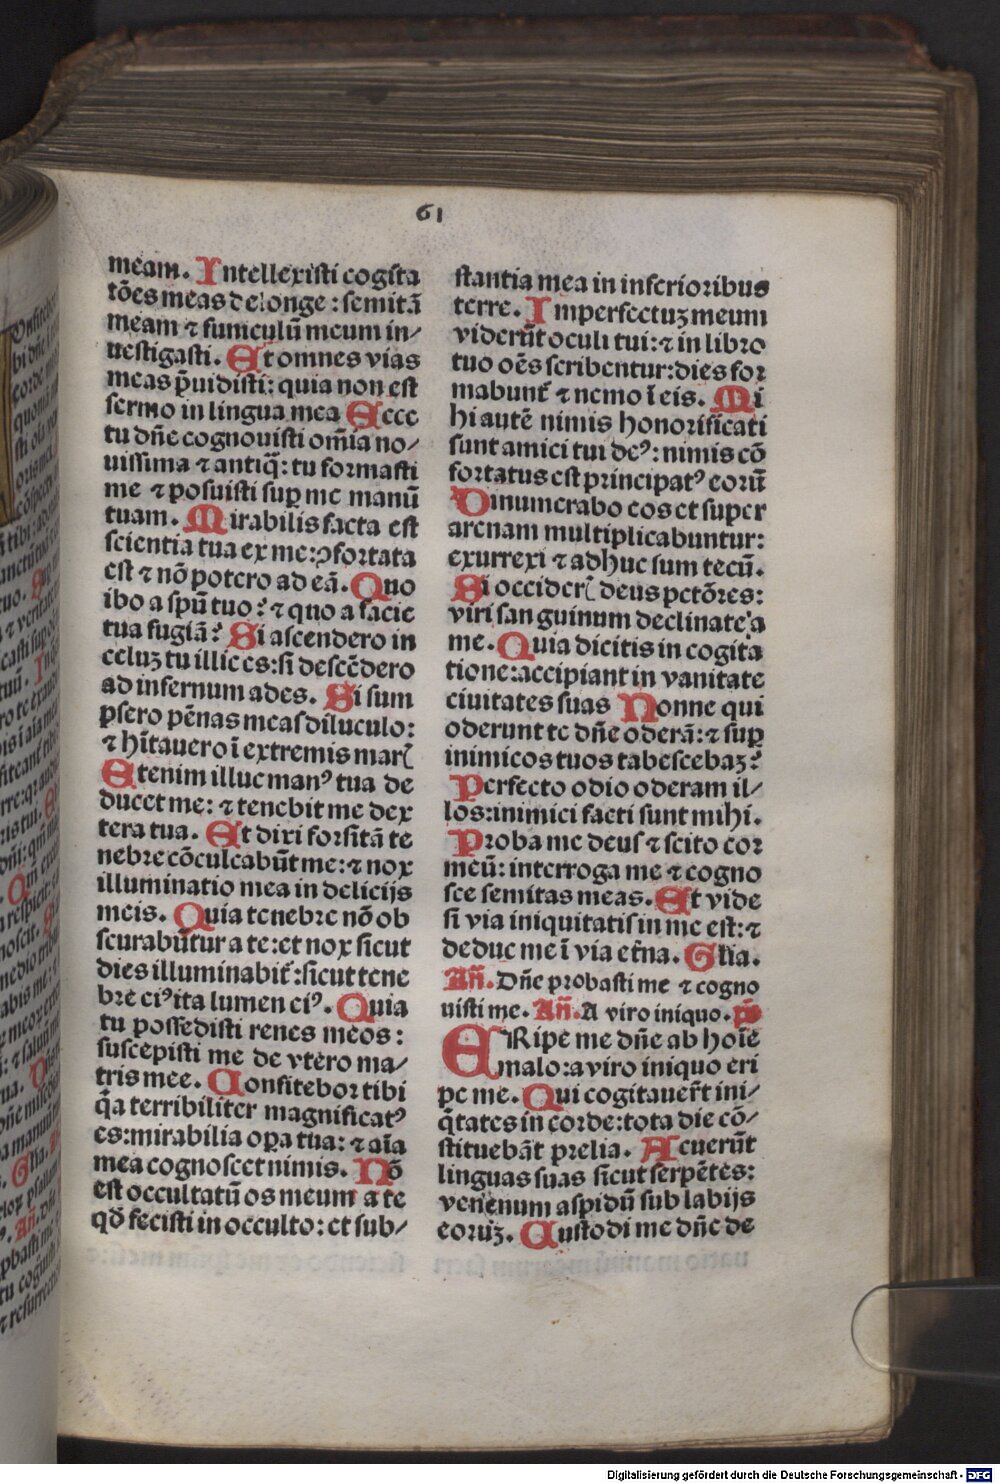 61
meam. Intellexisti cogita
tões meas de longe: semitã
meam ⁊ funiculũ meum in⸗
uestigasti. Et omnes vias
meas p̃uidisti: quia non est
sermo in lingua mea Ecce
tu dñe cognouisti om̃ia no⸗
uissima ⁊ antiq̃: tu formasti
me ⁊ posuisti suꝑ me manũ
tuam. Mirabilis facta est
scientia tua ex me: ꝯfortata
est ⁊ nõ potero ad eã. Quo
ibo a spũ tuo? ⁊ quo a facie
tua fugiã? Si ascendero in
celuꝫ tu illic es: si descẽdero
ad infernum ades. Si sum
psero pẽnas meas diluculo:
⁊ hĩtauero ĩ extremis mar̃
Etenim illuc manꝰ tua de
ducet me: ⁊ tenebit me dex
tera tua. Et dixi forsitã te
nebre cõculcabũt me: ⁊ nox
illuminatio mea in delicijs
meis. Quia tenebre nõ ob
scurabũtur a te: et nox sicut
dies illuminabit̃: sicut tene
bre eiꝰ ita lumen eiꝰ. Quia
tu possedisti renes meos:
suscepisti me de vtero ma⸗
tris mee. Confitebor tibi
q̃a terribiliter magnificatꝰ
es: mirabilia oꝑa tua: ⁊ aĩa
mea cognoscet nimis. Nõ
est occultatũ os meum a te
qđ fecisti in occulto: et sub⸗
stantia mea in inferioribus
terre. Imperfectuꝫ meum
viderũt oculi tui: ⁊ in libro
tuo oẽs scribentur: dies for
mabunt̃ ⁊ nemo ĩ eis. Mi
hi autẽ nimis honorificati
sunt amici tui deꝰ: nimis cõ
fortatus est principatꝰ eorũ
Dinumerabo eos et super
arenam multiplicabuntur:
exurrexi ⁊ adhuc sum tecũ.
Si occider̃ deus pctõres:
viri sanguinum declinate a
me. Quia dicitis in cogita
tione: accipiant in vanitate
ciuitates suas Nonne qui
oderunt te dñe oderã: ⁊ suꝑ
inimicos tuos tabescebaꝫ?
Perfecto odio oderam il⸗
los: inimici facti sunt mihi.
Proba me deus ⁊ scito cor
meũ: interroga me ⁊ cogno
sce semitas meas. Et vide
si via iniquitatis in me est: ⁊
deduc me ĩ via eťna. Glia.
Añ. Dñe probasti me ⁊ cogno
uisti me. Añ. A viro iniquo. p̃s
ERipe me dñe ab hoĩe
malo: a viro iniquo eri
pe me. Qui cogitauer̃t ini⸗
q̃tates in corde: tota die cõ⸗
stituebãt prelia. Acuerũt
linguas suas sicut serpẽtes:
venenum aspidũ sub labijs
eoruꝫ. Custodi me dñe de
Digitalisierung gefördert durch die Deutsche Forschungsgemeinschaft - DFG